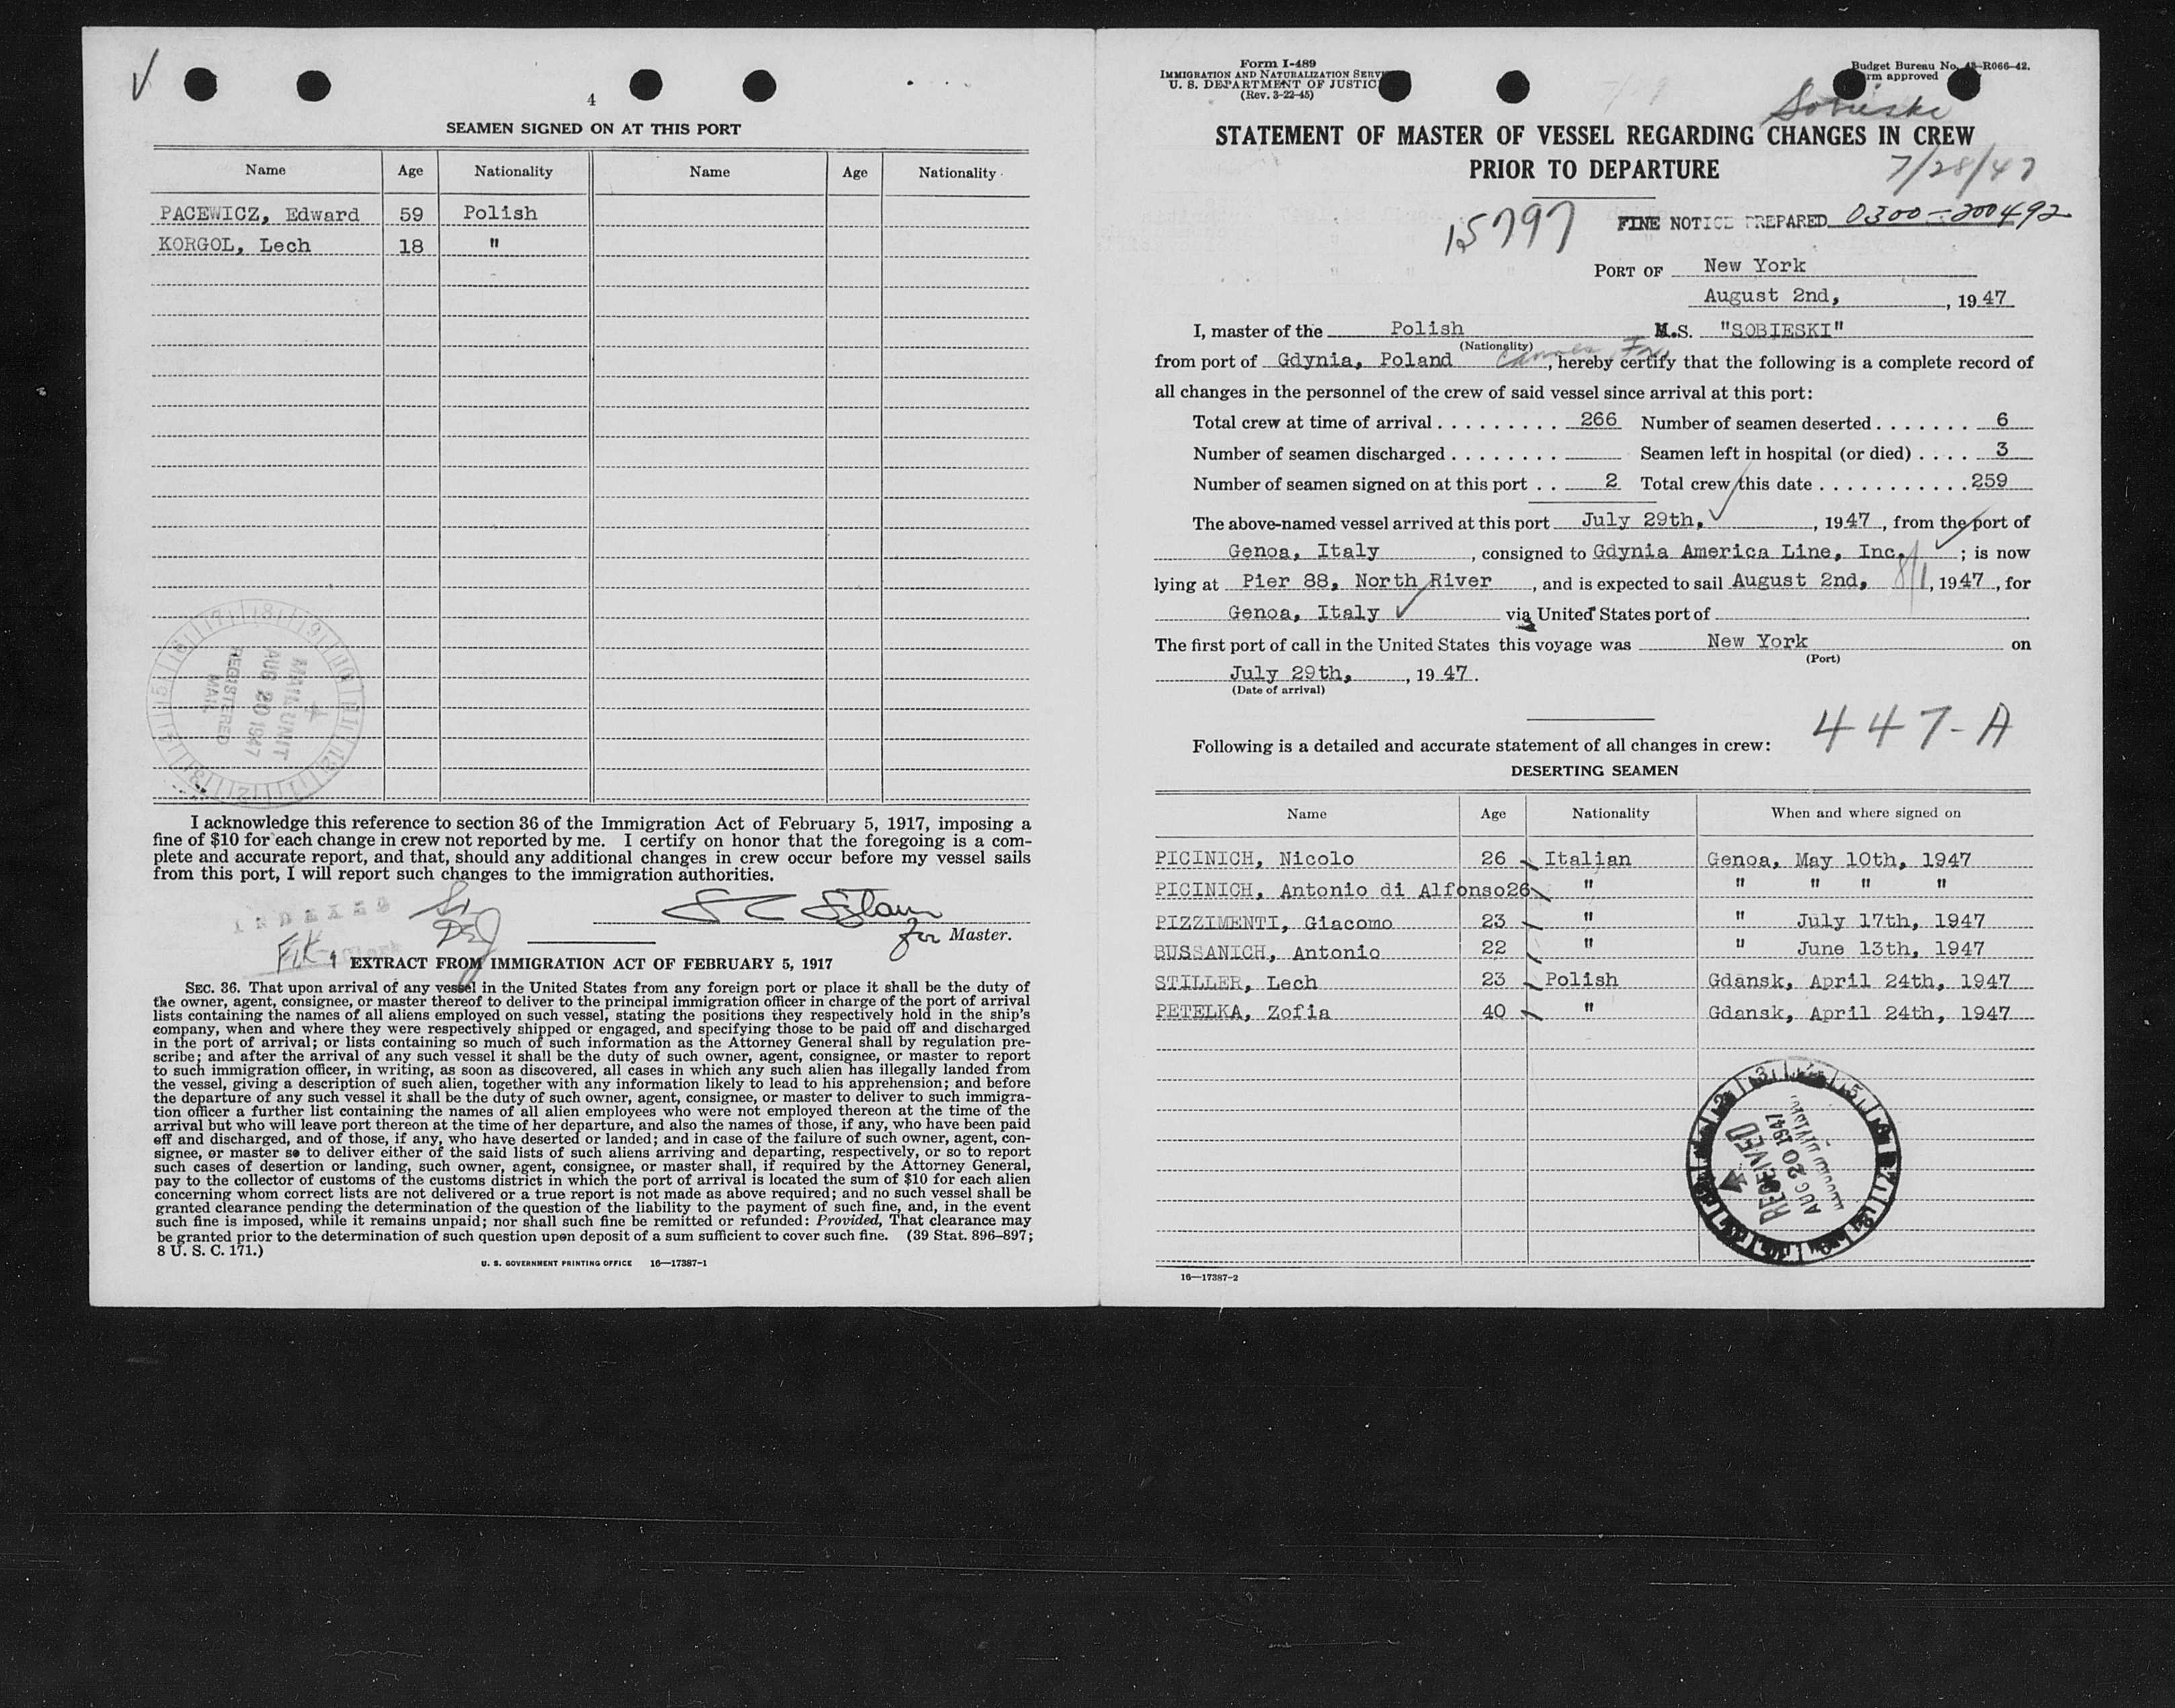 4
SEAMEN SIGNED ON AT THIS PORT
Name Age Nationality Name Age Nationality
PACEWICZ, Edward 59 Polish
KORGOL, Lech 18 "
MAIL UNIT
AUG 20 1947
REGISTERED
MAIL
I acknowledge this reference to section 36 of the Immigration Act of February 5, 1917, imposing a
fine of $10 for each change in crew not reported by me. I certify on honor that the foregoing is a com-
plete and accurate report, and that, should any additional changes in crew occur before my vessel sails
from this port, I will report such changes to the immigration authorities.
INDEXED
for Master.
EXTRACT FROM IMMIGRATION ACT OF FEBRUARY 5, 1917
SEC. 36. That upon arrival of any vessel in the United States from any foreign port or place it shall be the duty of
the owner, agent, consignee, or master thereof to deliver to the principal immigration officer in charge of the port of arrival
lists containing the names of all aliens employed on such vessel, stating the positions they respectively hold in the ship's
company, when and where they were respectively shipped or engaged, and specifying those to be paid off and discharged
in the port of arrival; or lists containing so much of such information as the Attorney General shall by regulation pre-
scribe; and after the arrival of any such vessel it shall be the duty of such owner, agent, consignee, or master to report
to such immigration officer, in writing, as soon as discovered, all cases in which any such alien has illegally landed from
the vessel, giving a description of such alien, together with any information likely to lead to his apprehension; and before
the departure of any such vessel it shall be the duty of such owner, agent, consignee, or master to deliver to such immigra-
tion officer a further list containing the names of all alien employees who were not employed thereon at the time of the
arrival but who will leave port thereon at the time of her departure, and also the names of those, if any, who have been paid
off and discharged, and of those, if any, who have deserted or landed; and in case of the failure of such owner, agent, con-
signee, or master so to deliver either of the said lists of such aliens arriving and departing, respectively, or so to report
such cases of desertion or landing, such owner, agent, consignee, or master shall, if required by the Attorney General,
pay to the collector of customs of the customs district in which the port of arrival is located the sum of $10 for each alien
concerning whom correct lists are not delivered or a true report is not made as above required; and no such vessel shall be
granted clearance pending the determination of the question of the liability to the payment of such fine, and, in the event
such fine is imposed, while it remains unpaid; nor shall such fine be remitted or refunded: Provided, That clearance may
be granted prior to the determination of such question upon deposit of a sum sufficient to cover such fine. (39 Stat. 896–897;
8 U. S. C. 171.)
U. S. GOVERNMENT PRINTING OFFICE 16—17387-1
Form I-489
IMMIGRATION AND NATURALIZATION SERV
U. S. DEPARTMENT OF JUSTIC
(Rev. 3-22-45)
Budget Bureau No. 43-R066-42.
rm approved
Sobieski
STATEMENT OF MASTER OF VESSEL REGARDING CHANGES IN CREW
PRIOR TO DEPARTURE
7/28/47
15797
FINE NOTICE PREPARED 0300-200492
PORT OF New York
August 2nd, , 1947
I, master of the Polish M.S. "SOBIESKI"
(Nationality)
from port of Gdynia, Poland , hereby certify that the following is a complete record of
all changes in the personnel of the crew of said vessel since arrival at this port:
Total crew at time of arrival . . . . . . . . . 266 Number of seamen deserted . . . . . . . 6
Number of seamen discharged . . . . . . . . Seamen left in hospital (or died) . . . . 3
Number of seamen signed on at this port . . 2 Total crew this date . . . . . . . . . . . 259
The above-named vessel arrived at this port July 29th, , 1947, from the port of
Genoa, Italy , consigned to Gdynia America Line, Inc. ; is now
lying at Pier 88, North River , and is expected to sail August 2nd, 8/1, 1947, for
Genoa, Italy via United States port of
The first port of call in the United States this voyage was New York on
(Port)
July 29th, , 1947.
(Date of arrival)
447-A
Following is a detailed and accurate statement of all changes in crew:
DESERTING SEAMEN
Name Age Nationality When and where signed on
PICINICH, Nicolo 26 Italian Genoa, May 10th, 1947
PICINICH, Antonio di Alfonso 26 " " " " "
PIZZIMENTI, Giacomo 23 " " July 17th, 1947
BUSSANICH, Antonio 22 " " June 13th, 1947
STILLER, Lech 23 Polish Gdansk, April 24th, 1947
PETELKA, Zofia 40 " Gdansk, April 24th, 1947
RECEIVED
AUG 20 1947
16—17387-2